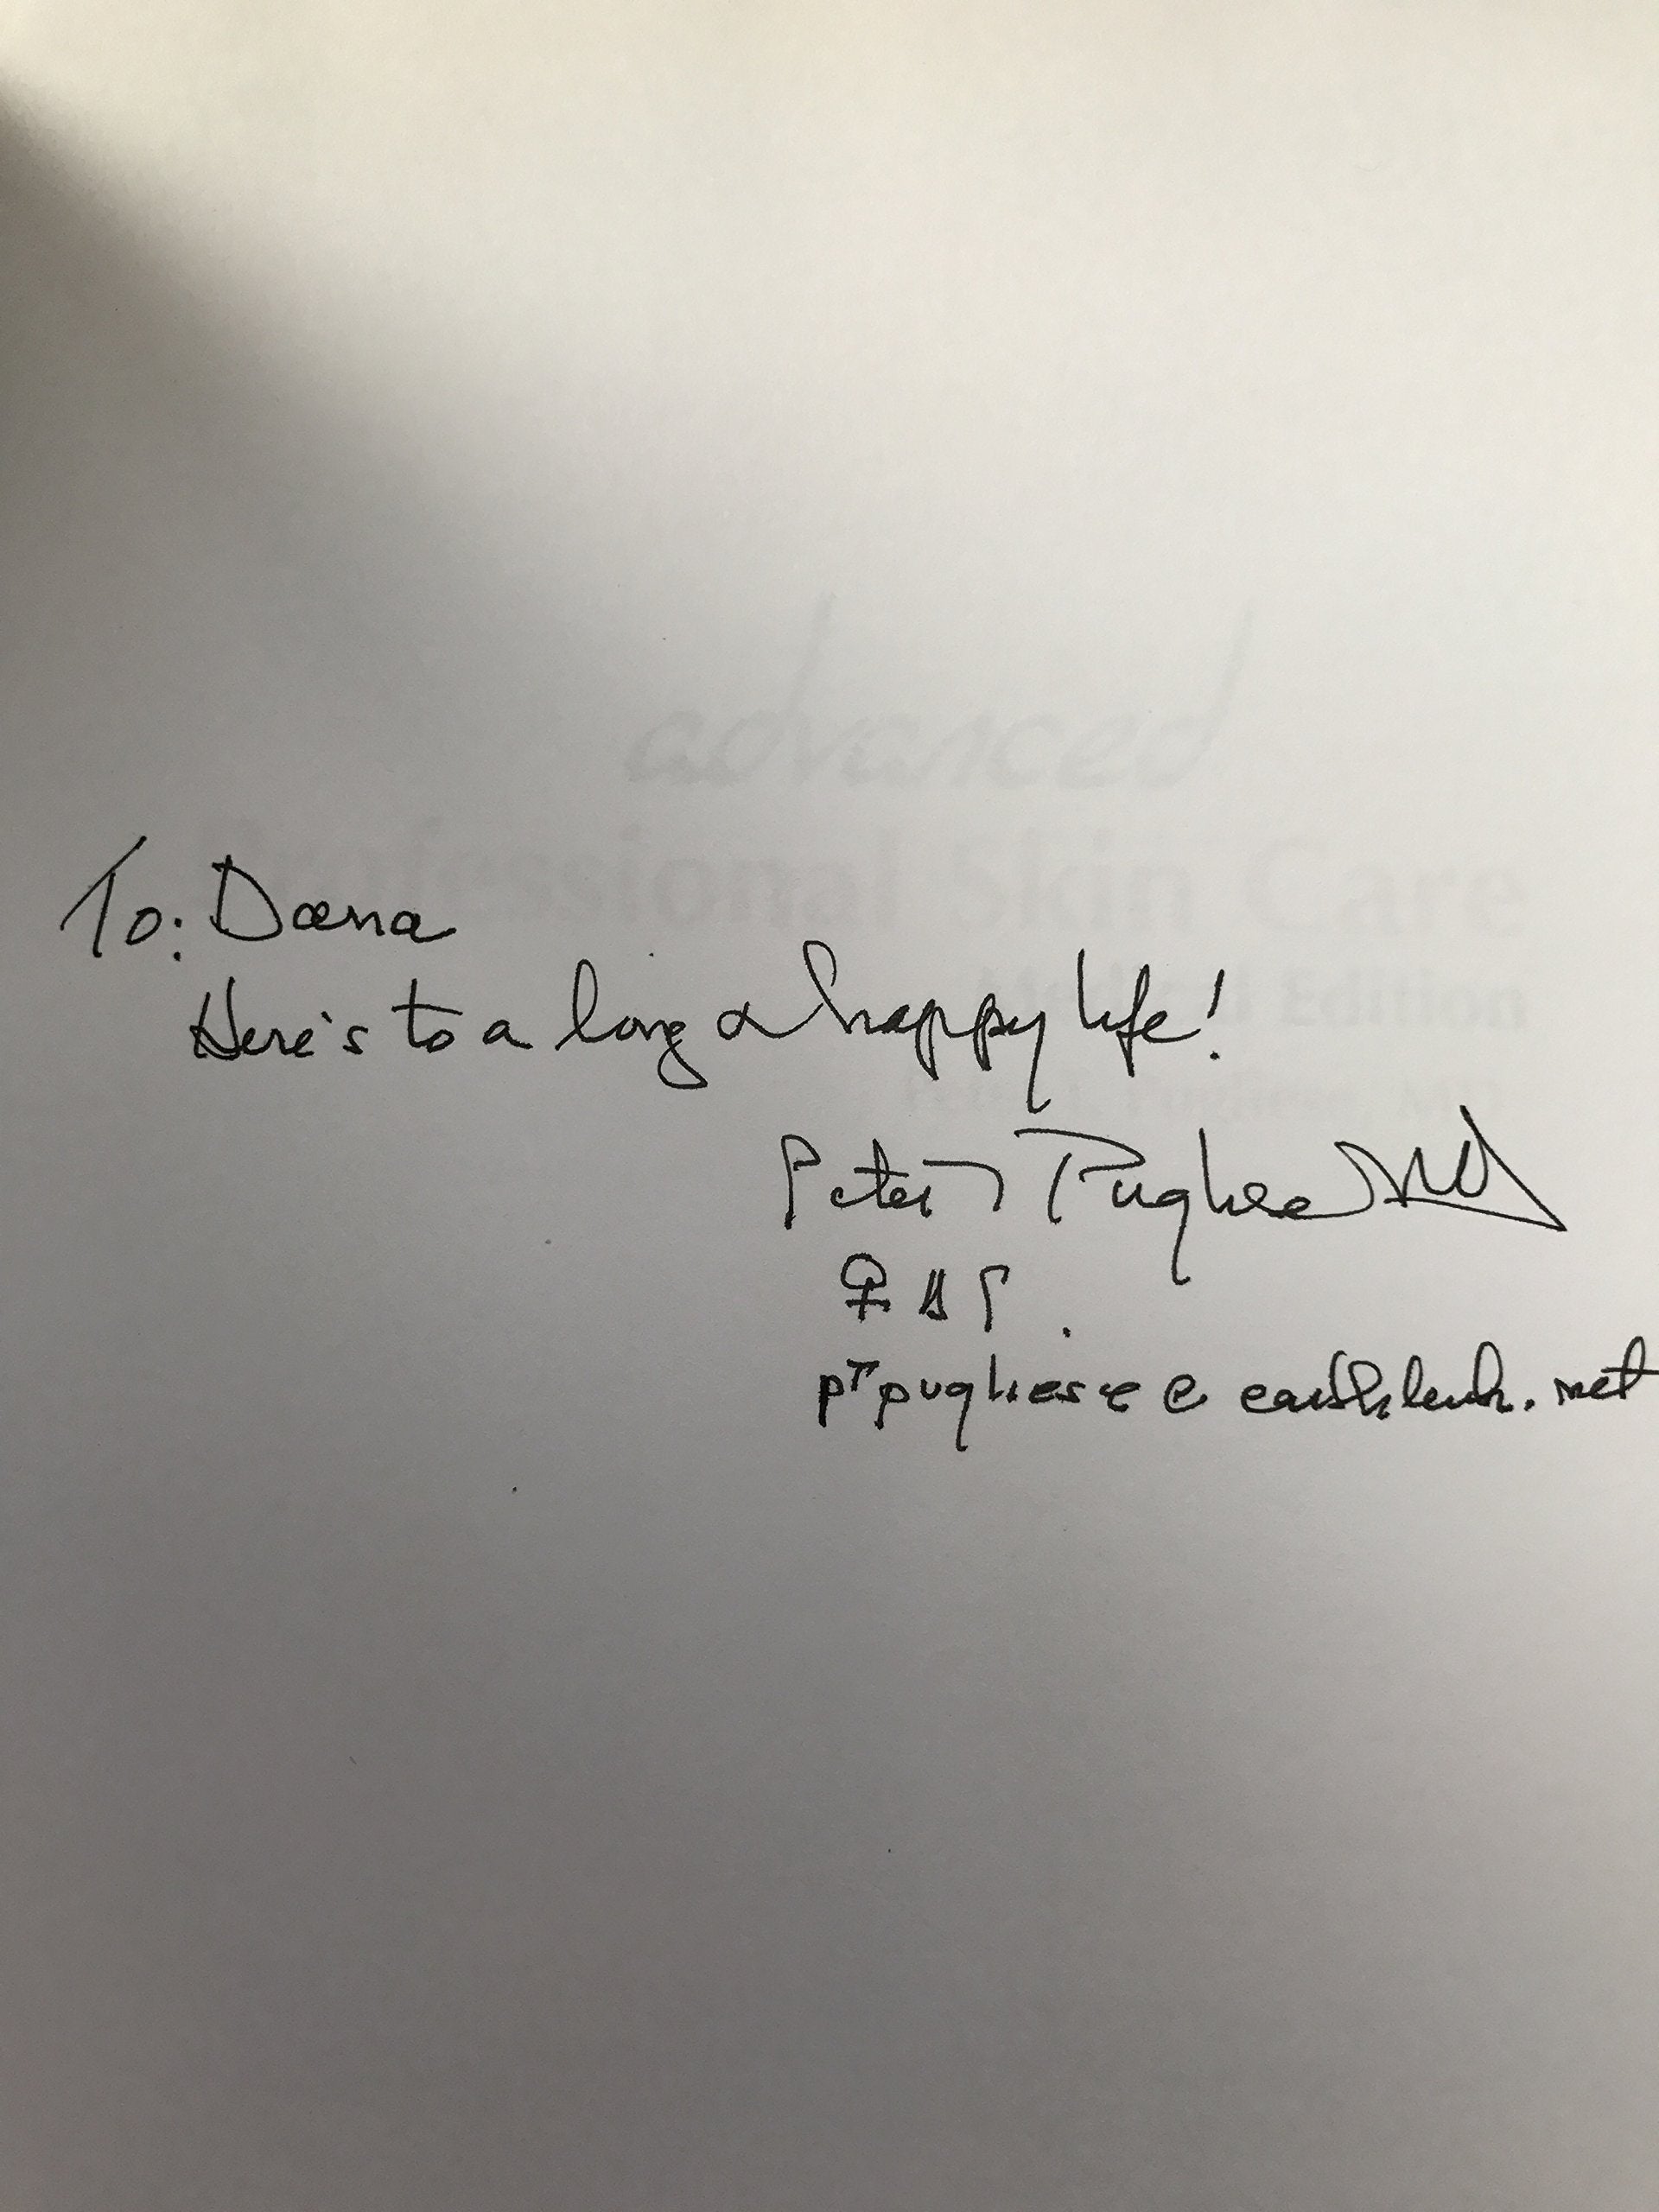 advanced
Professional Skin Care
Medical Edition
To: Dana
Here's to a long & happy life!
Peter T Pugliese MD
ptpugliese@earthlink.net